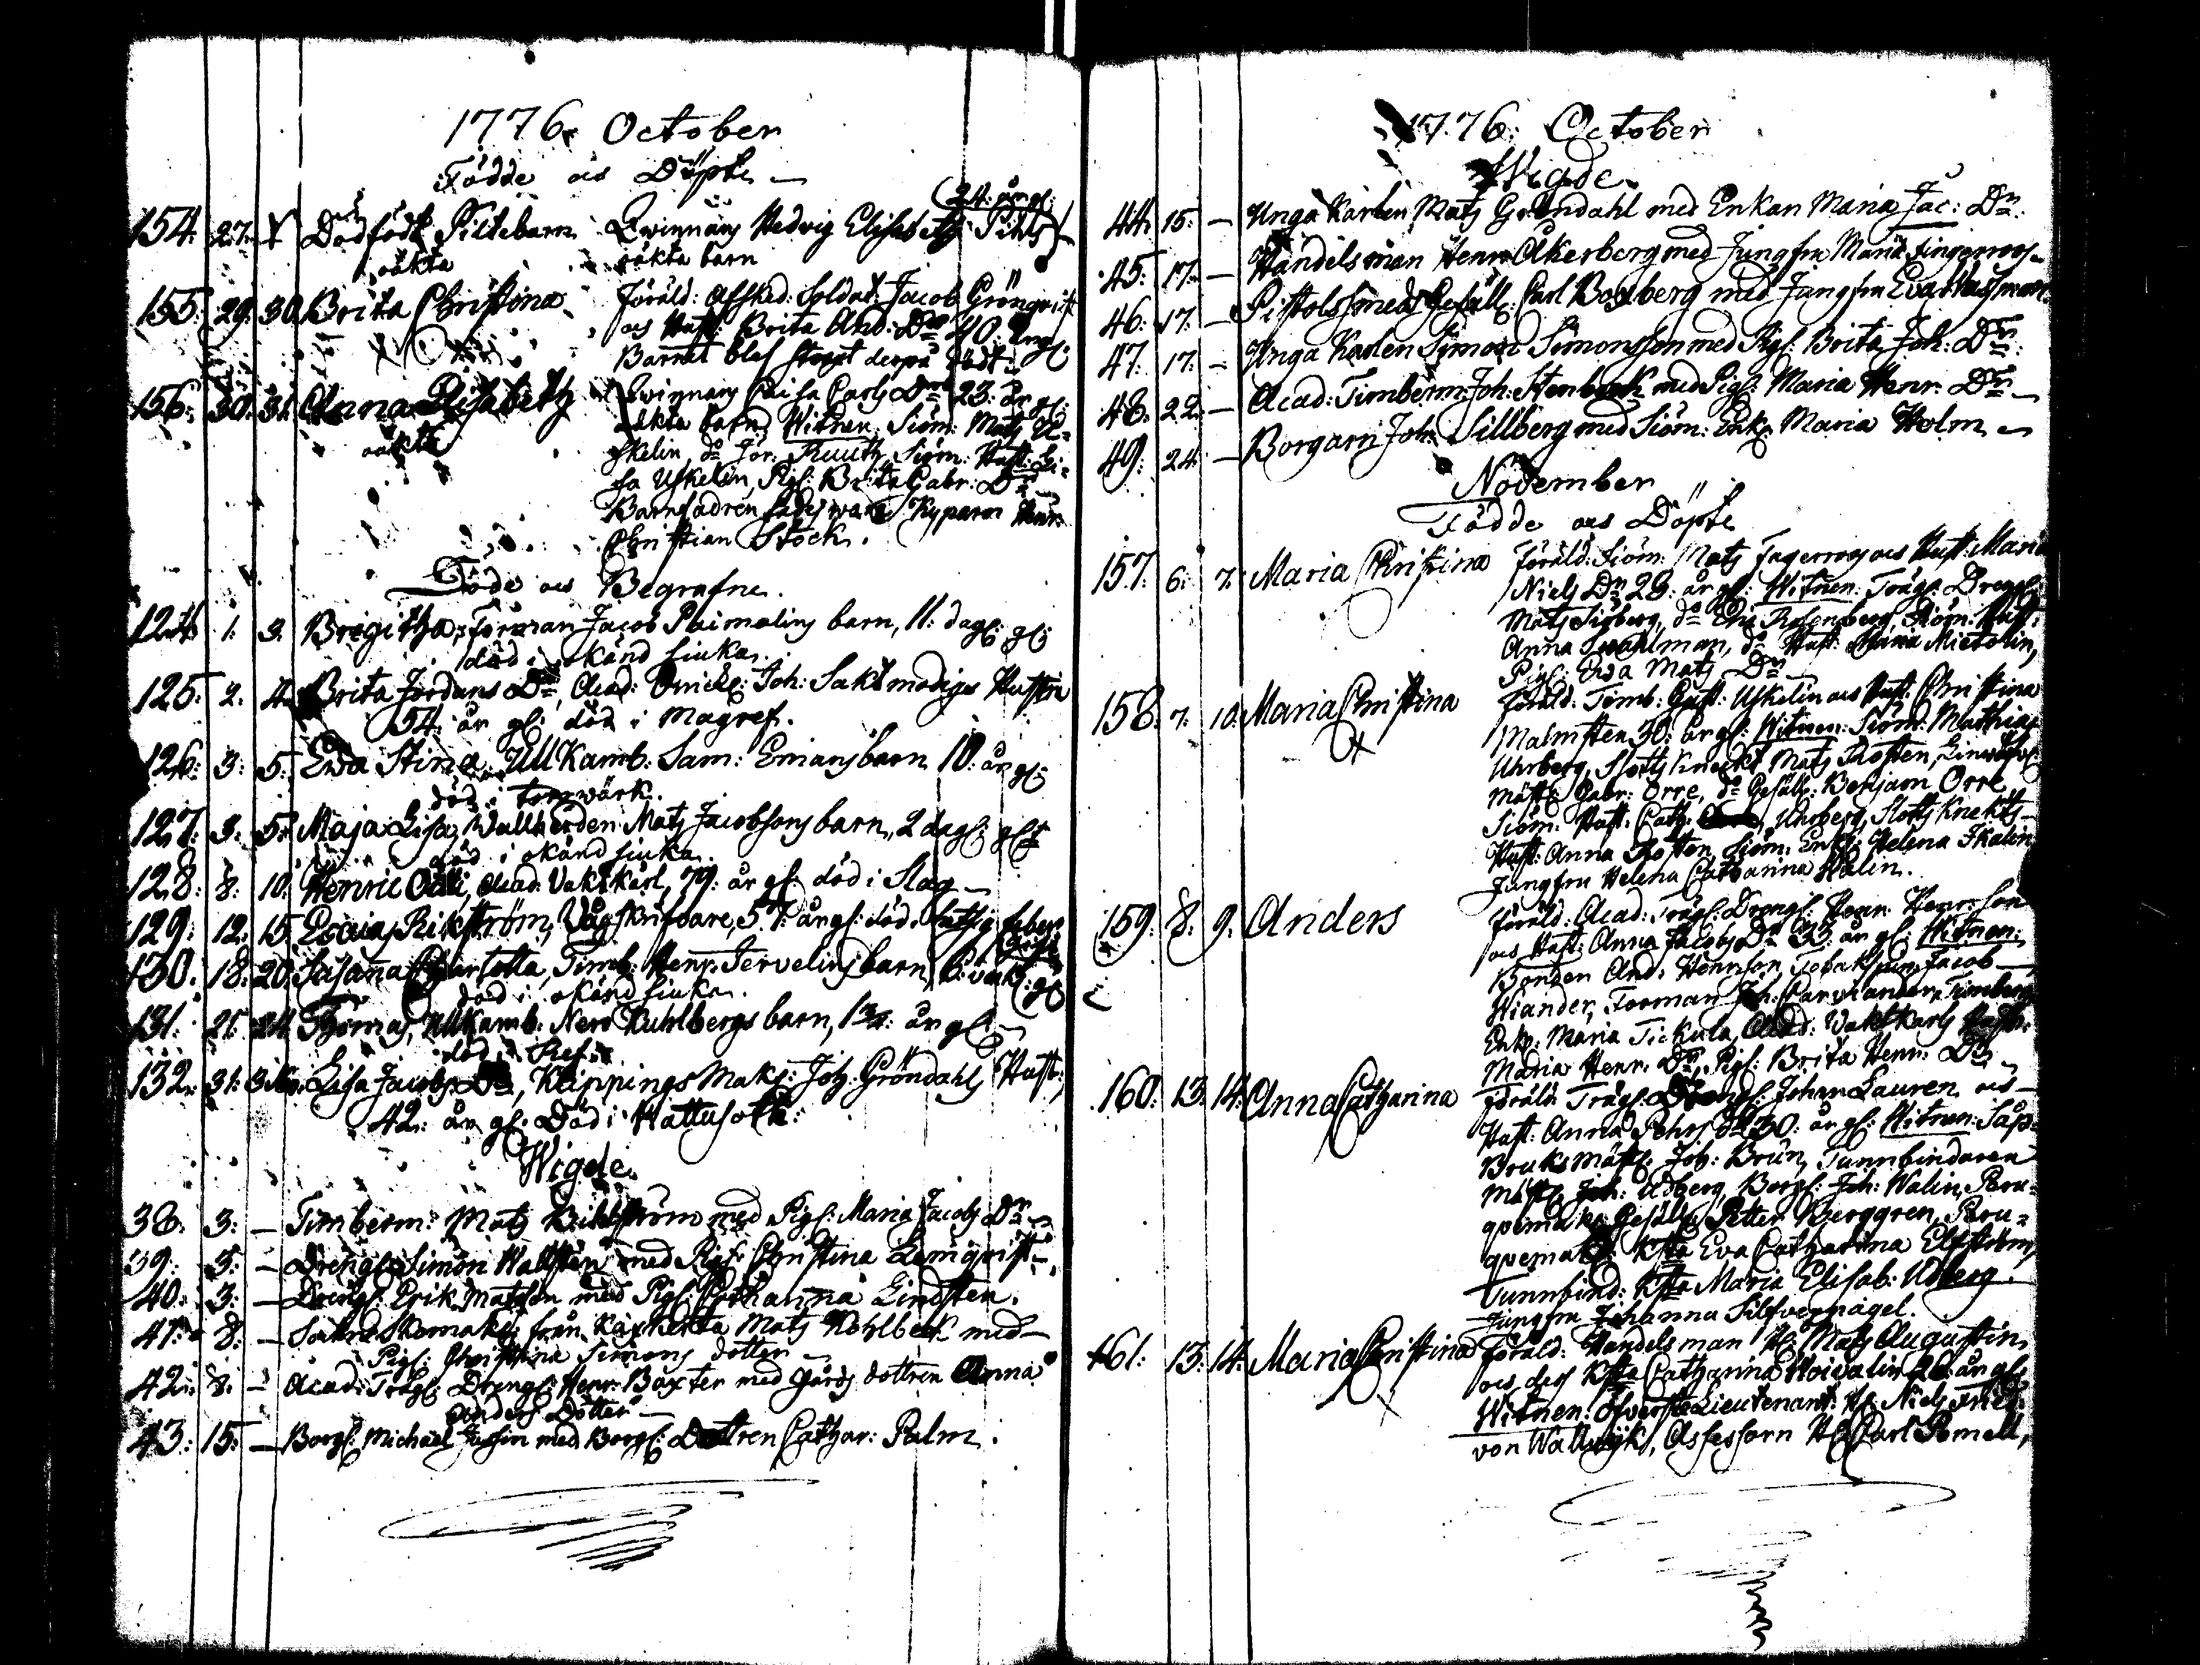 1776. October
Födde och Döpte
154. 27. Dödfödt Piltebarn Qvinnans Hedvig Elisabeth Pihls 24. år gl:
oäkta oäkta barn
155. 29. 30. Brita Christina Föräld: Afsked: Soldat: Jacob Grönqvist
och Hust: Brita And: Dr 40. år gl:
Barnet blef straxt derpå dödt
156. 30. 31. Anna Elisabeth Qvinnans Caisa Carls Dr 23. år gl:
oäkta oäkta barn Witnen Siöm: Mats U=
skelin, do Jör: Ruuth, Siöm: Hust: Li=
sa Uskelin, Pig: Brita Gabr: Dr
Barnfadren sades wara Kyparen Henr:
Christian Stock.
Döde och Begrafne.
124. 1. 3. Bregitha, Förman Jacob Paimalins barn, 11. dag: gl:
död i okänd siuka.
125. 2. 4. Brita Jordans Dr, Acad: Joh: Saktmodigs Hustru
54. år gl: död i Magref.
126. 3. 5. Ewa Stina Ullkamb: Sam: Emans barn 10. år gl:
död i torrwärk.
127. 3. 5. Maja Lisa, Wallherden Mats Jacobsons barn, 2 dag: gl:
död i okänd siuka.
128. 8. 10. Henric Acad: Vaktkarl, 79. år gl: död i Slag
129. 12. 15. Esaias Rikström, Vågskrifvare, 57. år gl: död i hetsig feber
130. 18. 20. Susanna Charlotta, Timb: Henr: Tervelins barn, 6. veck: gl:
död i okänd siuka.
131. 21. 24. Thomas, Ullkamb: Kuhlbergs barn, 1 3/4. år gl:
död i Ref.
132. 31. Lisa Jacobs Dr, Klippings Mak: Joh: Gröndahls Hustr:
42. år gl: Död i Hattusott:
Wigde.
38. 3. — Timberm: Mats med Pig: Maria Jacobs Dr
39. 3. — Dreng: Simon Wallsten med Pig: Christina Lemqvist
40. 3. — Dreng: Erik Matsson med Pig: Catharina Lindsten.
41. 8. — Sokne Skomak: från Kaxkerta Mats Kohlbeck med
Pig: Christina Simons dotter
42. 8. — Acad: Trägl: Dreng: Henr: Baxter med gårds dottren Anna
Anders Dotter
43. 15. — Borg: Michael Jusin med Borg: Dottren Cathar: Palm.
1776. October
Wigde
44. 15. — Unga Karlen Mats Gröndahl med Enkan Maria Jac: Dr.
45. 17. — Handelsman Henr: Åkerberg med Jungfru Maria Lingerroos
46. 17. — Pistolsmeds Gesäll: Carl Boxberg med Jungfru Eva Hagman
47. 17. — Unga Karlen Simon Simonsson med Pig: Brita Joh: Dr:
48. 22. — Acad: Timberm: Joh: Stenbeck med Pig: Maria Henr: Dr
49. 24. — Borgarn Joh: Sillberg med Siöm: Enk: Maria Holm
November
Födde och Döpte
157. 6. 7. Maria Christina Föräld: Siöm: Mats Fagerroos och Hust: Maria
Niels Dr 28. år gl: Witnen: Trägl: Dreng:
Mats Siöberg, do Chr: Rosenberg, Siöm: Hust:
Anna Swahlman, do Hust: Maria Mietolin,
Pig: Ewa Mats Dr
158. 7. 10. Maria Christina Föräld: Timb: Gust: Uskelin och Hust: Christina
Malmsten 30. år gl: Witnen: Siöm: Mathias
Uhrberg, Slotts Knecht Mats Rosten,
Mäst: Gabr: Orre, do Gesäll: Benjam Orre
Siöm: Hust: Cath: Uhrberg, Slotts Knekts
Hust: Anna Rosten, Siöm: Enk: Helena Ikalin
Jungfru Helena Catharina Walin.
159. 8. 9. Anders Föräld: Acad: Trägl: Dreng: Henr: Henrsson
och Hust: Anna Jacobs Dr 33. år gl: Witnen:
Bonden And: Henrsson, Tobakspin: Jacob
Wiander, Forman Joh: Timberm:
Enk: Maria Tickula, Acad: Vaktkarls Hustr:
Maria Henr: Dr, Pig: Brita Henr: Dr
160. 13. 14. Anna Catharina Föräld: Trägl: Dreng: Johan Lauren och
Hust: Anna Pehrs Dr 30. år gl: Witnen: Såp=
Bruks Mäst: Joh: Brun, Tunnbindaren
Mäst: Joh: Udberg, Borg: Joh: Walin, Peru=
qvemak: Gesäll: Petter Burggren, Peru=
qvemak: K:sta Eva Catharina Elfström,
Tunnbind: K:sta Maria Elisab: Udberg.
Jungfru Johanna Silfvernagel.
161. 13. 14. Maria Christina Föräld: Handelsman H: Mats Augustin
och des K:sta Catharina 28. år gl:
Witnen: Öfverste Lieutenant: H: Niels Fried:
von Wallwijk, Assessorn H: Carl Pomell,